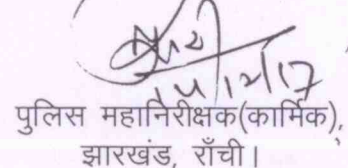 14/12/17
पुलिस महानिरीक्षक(कार्मिक),
झारखंड, राँची।